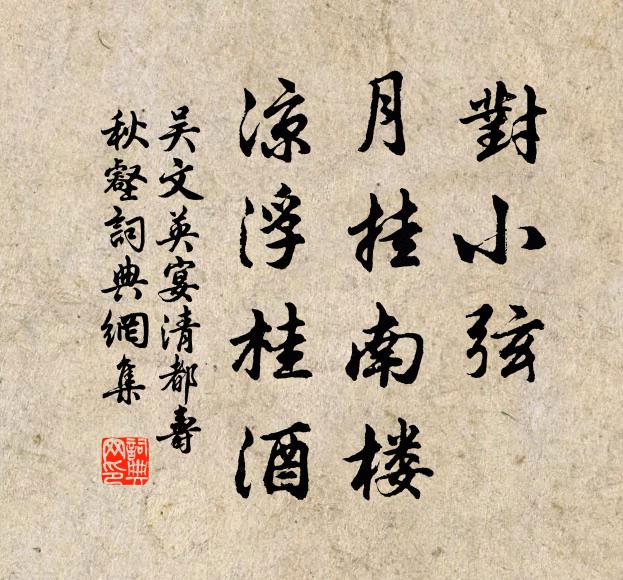 對小弦
月挂南楼
凉浮桂酒
吴文英宴清都壽
秋壑詞典網集
詞典网印